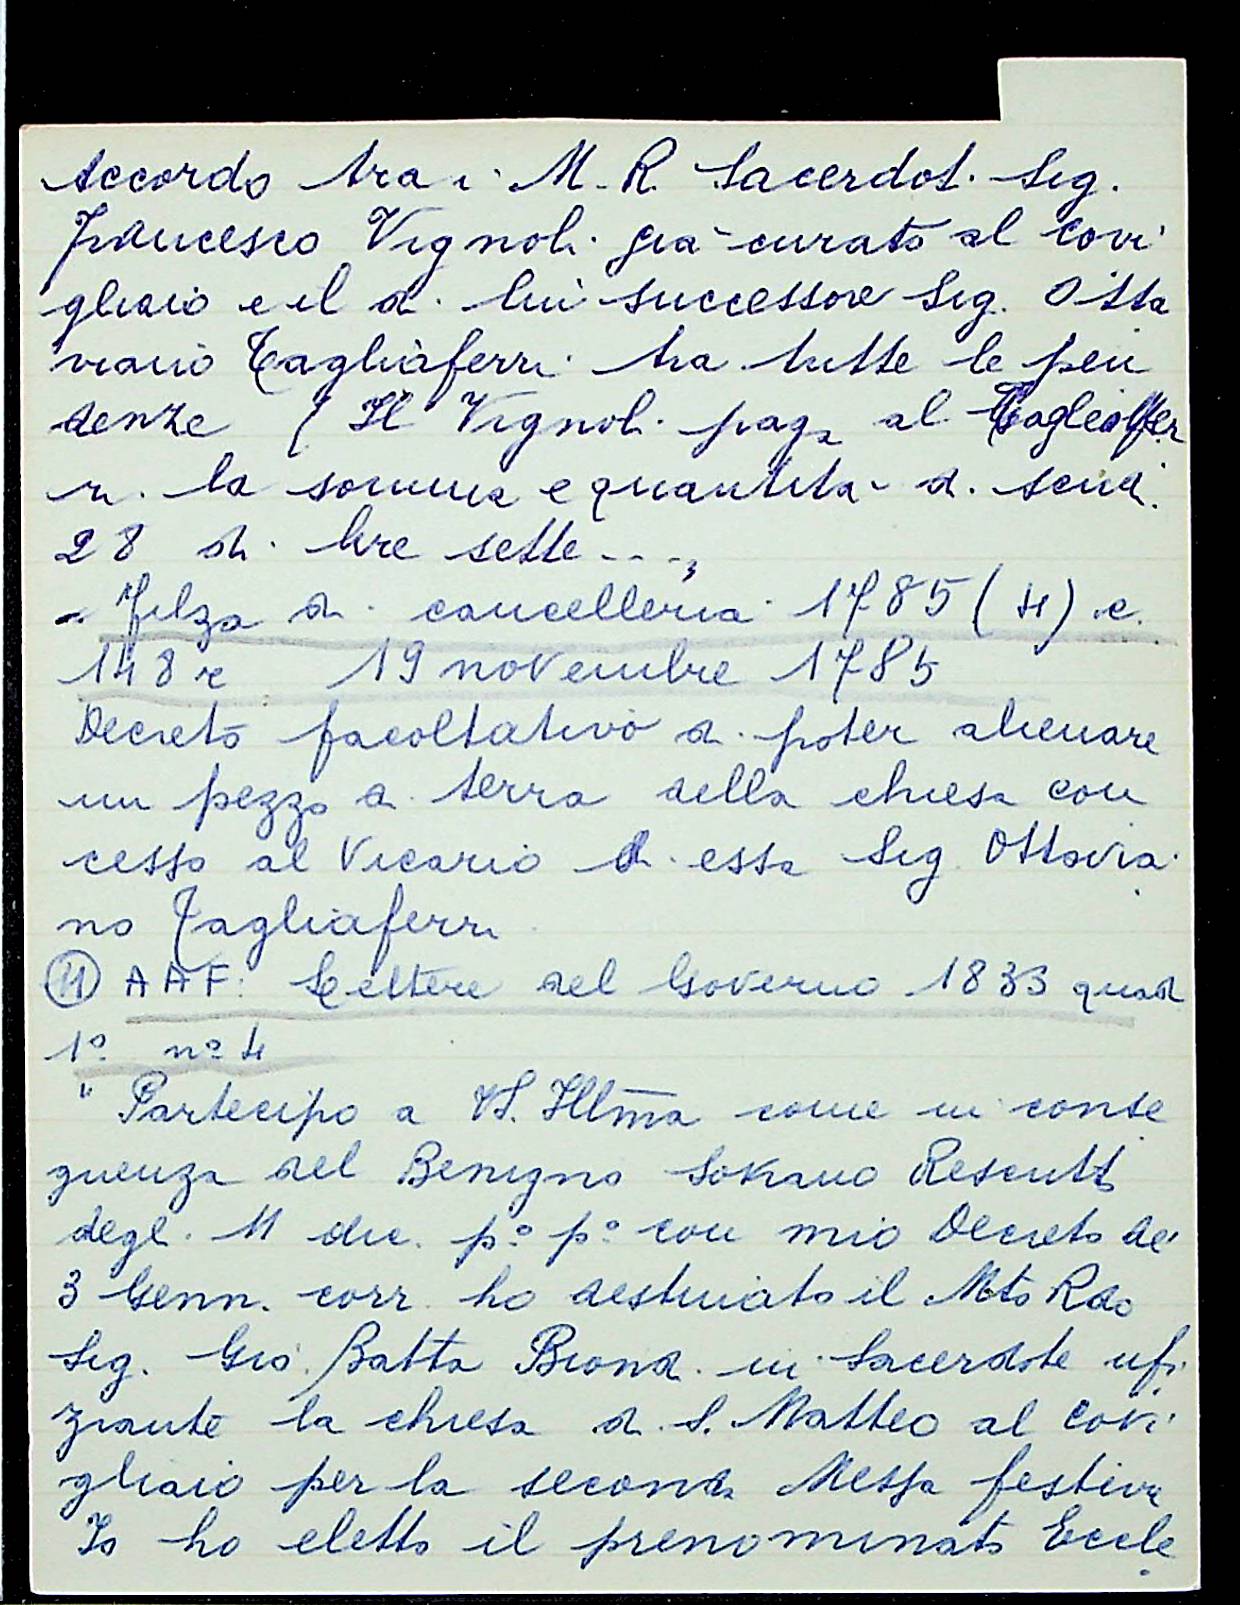 Accordo tra i M. R. Sacerdoti Sig.
Francesco Vignoli già curato al Covi
gliaio e il di lui successore Sig. Otta
viano Tagliaferri tra tutte le pen
denze (Il Vignoli paga al Tagliafer
ri la somma e quantità di scudi
28 di lire sette ...,
- Filza di cancelleria 1785 (4) c.
148 r 19 novembre 1785
Decreto facoltativo di poter alienare
un pezzo di terra della chiesa con
cesso al Vicario di essa Sig. Ottavia
no Tagliaferri
(11) AAF: Lettere del Governo 1833 quad
1º nº 4
" Partecipo a VS. Illma come in conse
guenza del Benigno Sovrano Rescritt
degl. 11 dic. pº pº con mio Decreto de'
3 Genn. corr. ho destinato il Mto Rdo
Sig. Gio. Batta Biondi in Sacerdote ufi
ziante la chiesa di S. Matteo al Covi
gliaio per la seconda Messa festiva
Io ho eletto il prenominato Eccle